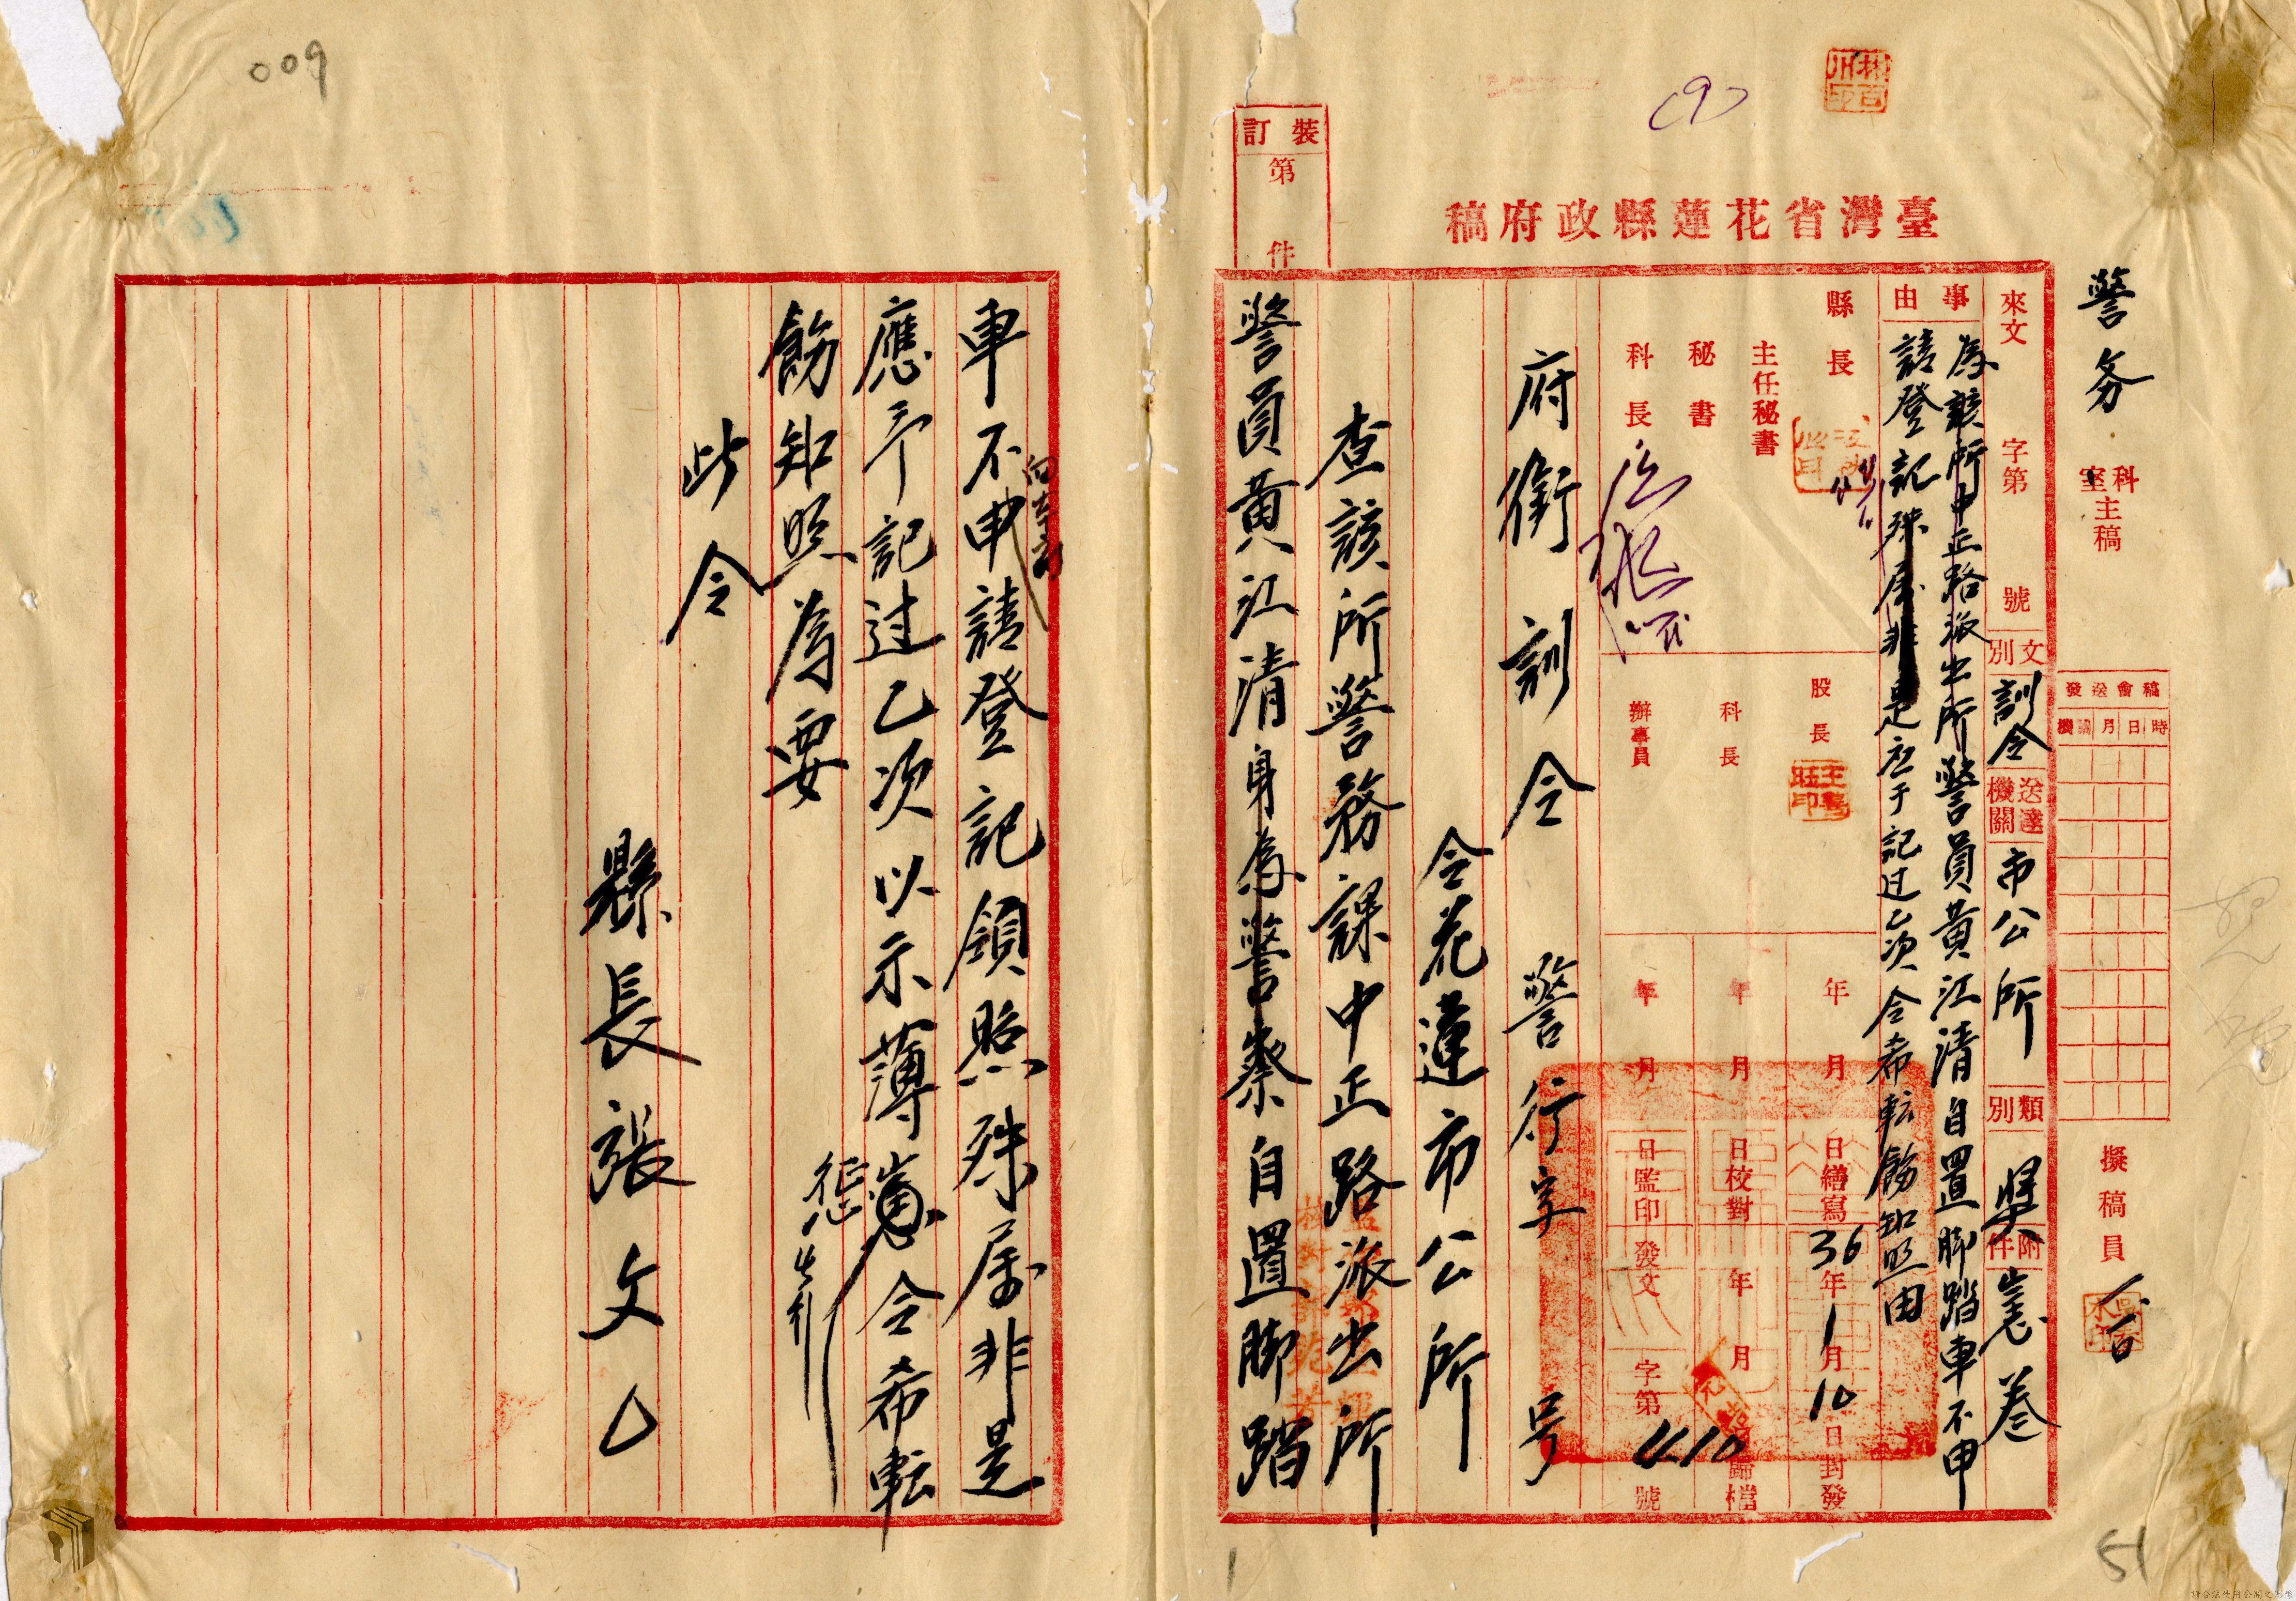 009
(9)
裝訂
第 件
臺灣省花蓮縣政府稿
警务 科室主稿
擬稿員
稿會送發
時日月機關
來文 字第 號
文別 訓令
送達機關 市公所
類別 獎懲卷
附件
事由
為該所中正路派出所警員黃江清自置脚踏車不申
請登記殊属非是应予記过乙次令希転飭知照由
縣長
主任秘書
秘書
科長
股長
科長
辦事員
年月日繕寫
年月日校對
年月日監印
36年1月10日封發
年月 歸檔
發文 字第 410 號
府銜訓令 警行字 号
令花蓮市公所
查該所警務課中正路派出所
警員黃江清身為警察自置脚踏
車不申請登記領照殊属非是
應予記过乙次以示薄懲令希転
飭知照為要
此令
縣長張文
1
51